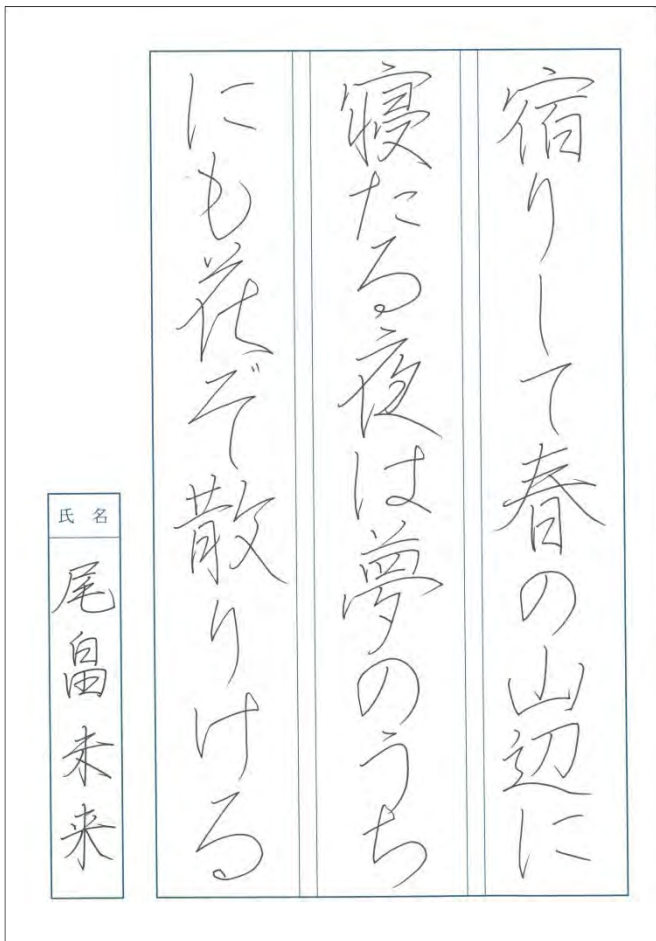 宿りして春の山辺に
寝たる夜は夢のうち
にも花ぞ散りける
氏名
尾畠未来